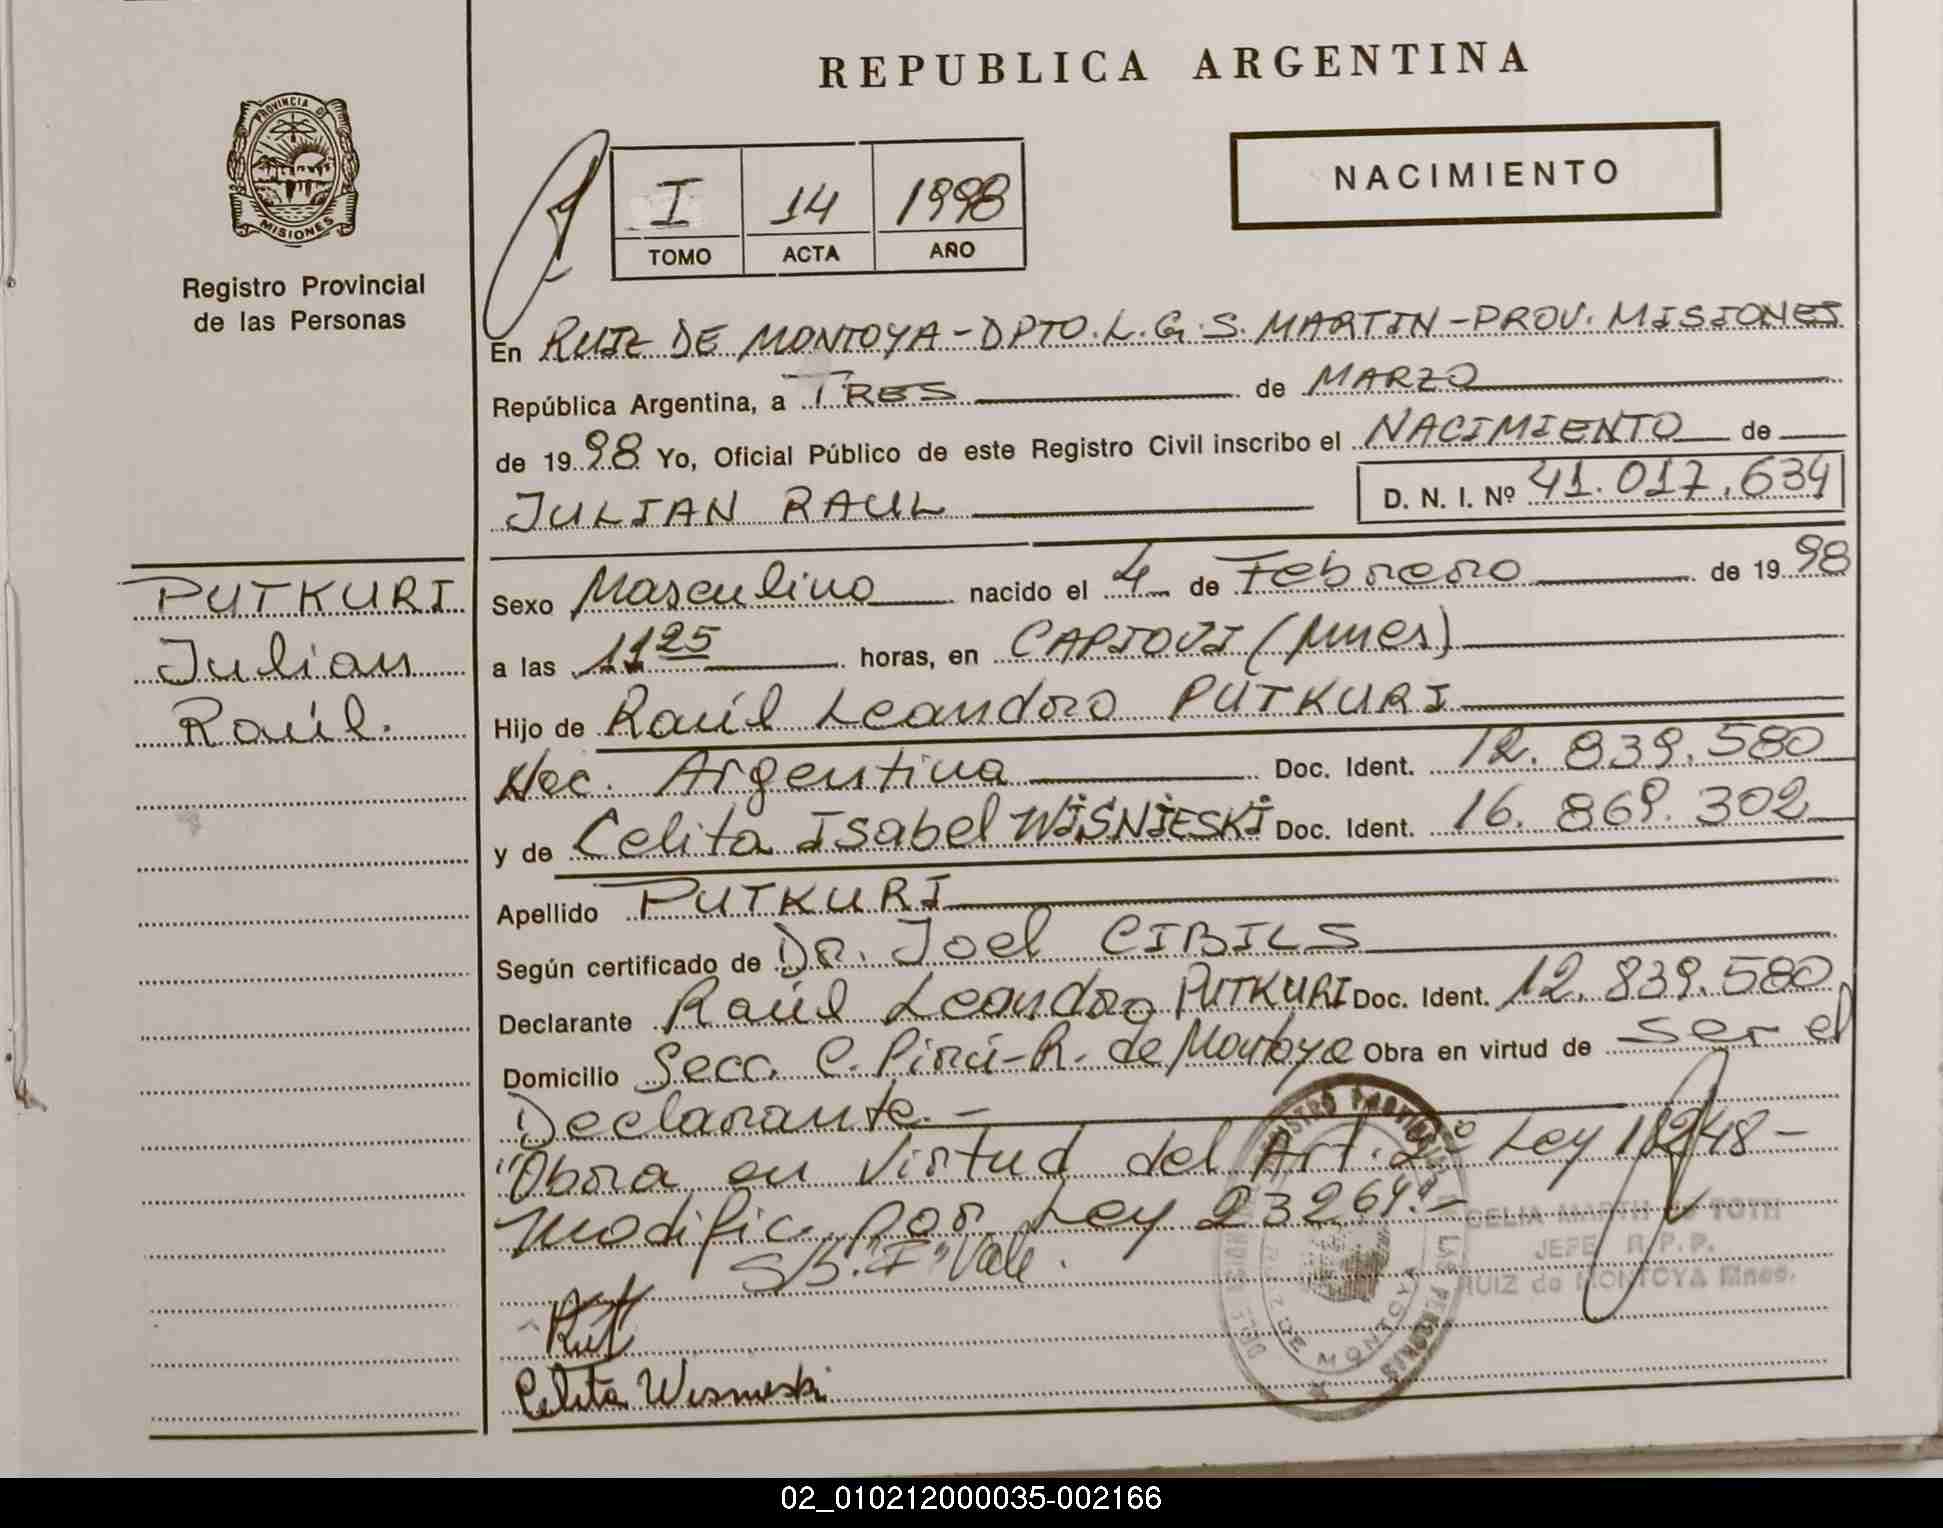 REPUBLICA ARGENTINA
PROVINCIA DE
MISIONES
Registro Provincial
de las Personas
I 14 1998
TOMO ACTA AÑO
NACIMIENTO
En RUIZ DE MONTOYA - DPTO. L. G. S. MARTIN - PROV. MISIONES
República Argentina, a TRES de MARZO
de 1998 Yo, Oficial Público de este Registro Civil inscribo el NACIMIENTO de
JULIAN RAUL D. N. I. Nº 41.017.634
PUTKURI
Julian
Raúl.
Sexo Masculino nacido el 4 de Febrero de 1998
a las 11 25 horas, en CAPIOVI (Mnes)
Hijo de Raúl Leandro PUTKURI
Nac. Argentina Doc. Ident. 12.839.580
y de Celita Isabel WISNIESKI Doc. Ident. 16.869.302
Apellido PUTKURI
Según certificado de Dr. Joel CIBILS
Declarante Raúl Leandro PUTKURI Doc. Ident. 12.839.580
Domicilio Secc. C. Pirú - R. de Montoya Obra en virtud de ser el
Declarante. -
"Obra en virtud del Art. 2º Ley 18248 -
modific. por Ley 23264" -
S/B. "I" Vale.
Celita Wisnieski
REGISTRO PROVINCIAL DE LAS PERSONAS
RUIZ DE MONTOYA
CELIA MARTH de TOTH
JEFE R.P.P.
RUIZ de MONTOYA Mnes.
02_010212000035-002166